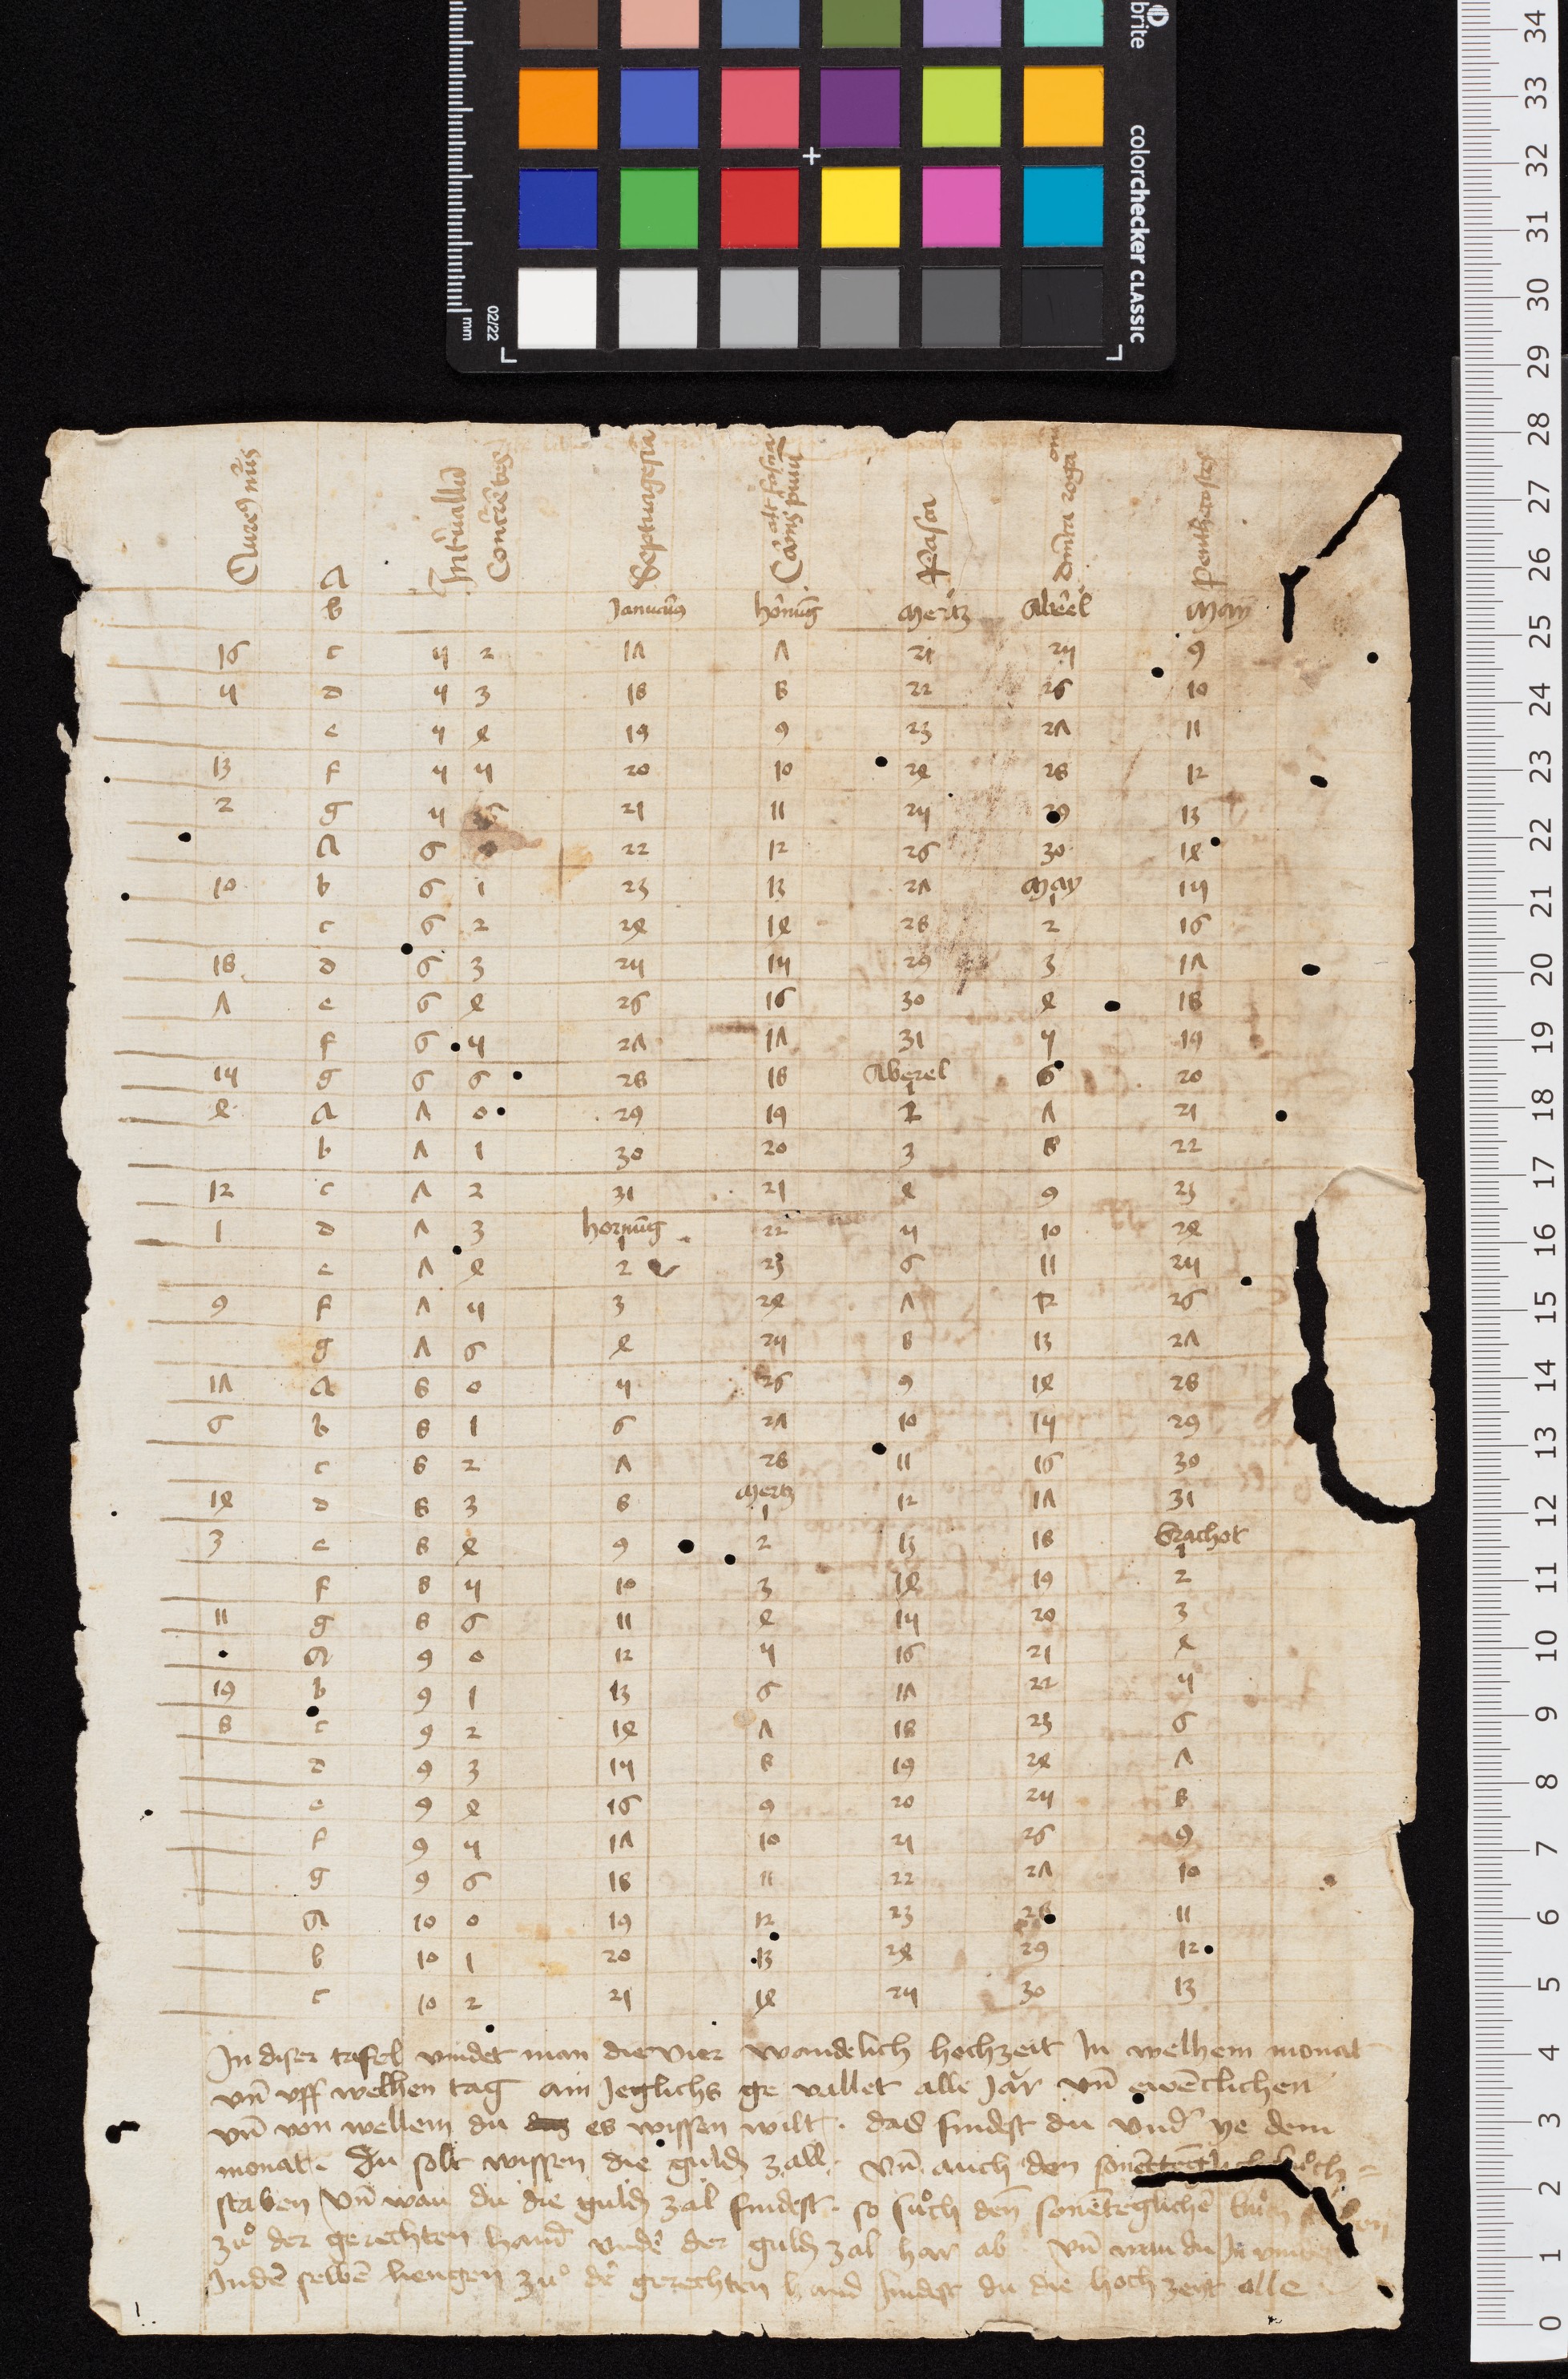 brite
colorchecker CLASSIC
02/22
mm
34 33 32 31 30 29 28 27 26 25 24 23 22 21 20 19 18 17 16 15 14 13 12 11 10 9 8 7 6 5 4 3 2 1 0
Aureꝯ nu̅s A Int̾uallu̅ Concu̾re̅tes Septuagesi̅a Carnis priui̅ alt fasna Pasca dm̅ica roga om̅ Penthecostes
b Januariꝯ hornu̅g Mertz Aberel May
16 c 5 2 17 7 21 25 9
5 d 5 3 18 8 22 26 10
e 5 4 19 9 23 27 11
13 f 5 5 20 10 24 28 12
2 g 5 6 21 11 25 29 13
A 6 0 22 12 26 30 14
10 b 6 1 23 13 27 May 1 15
c 6 2 24 14 28 2 16
18 d 6 3 25 15 29 3 17
7 e 6 4 26 16 30 4 18
f 6 5 27 17 31 5 19
15 g 6 6 28 18 Aberel 1 6 20
4 A 7 0 29 19 2 7 21
b 7 1 30 20 3 8 22
12 c 7 2 31 21 4 9 23
1 d 7 3 hornu̅g 1 22 5 10 24
e 7 4 2 23 6 11 25
9 f 7 5 3 24 7 12 26
g 7 6 4 25 8 13 27
17 A 8 0 5 26 9 14 28
6 b 8 1 6 27 10 15 29
c 8 2 7 28 11 16 30
14 d 8 3 8 Mertz 1 12 17 31
3 e 8 4 9 2 13 18 brachot 1
f 8 5 10 3 14 19 2
11 g 8 6 11 4 15 20 3
A 9 0 12 5 16 21 4
19 b 9 1 13 6 17 22 5
8 c 9 2 14 7 18 23 6
d 9 3 15 8 19 24 7
e 9 4 16 9 20 25 8
f 9 5 17 10 21 26 9
g 9 6 18 11 22 27 10
A 10 0 19 12 23 28 11
b 10 1 20 13 24 29 12
c 10 2 21 14 25 30 13
In diser tafel vindet man die vier wandelich hochzeit In welhem monat
vn̅ vff welhen tag ain Jeglichs ge vallet alle Jar vn̅ ewe̅clichen
vn̅ von wellem du es wissen wilt. das findest du vnd̾ ye dem
monat. Du solt wissen die guld̅ zall. vn̅ auch den sone̅teglich bůch=
staben Vn̅ wan du die guld̅ zal findest. so sůch den̅ sone̅tegliche̅
zů der gerechten hand vnde̾ der guld̅ zal har ab. vn̅ wan du In
Inde̅ selbe̅ liengen zů de̾ gerechten hand findest du die hoch zeit alle